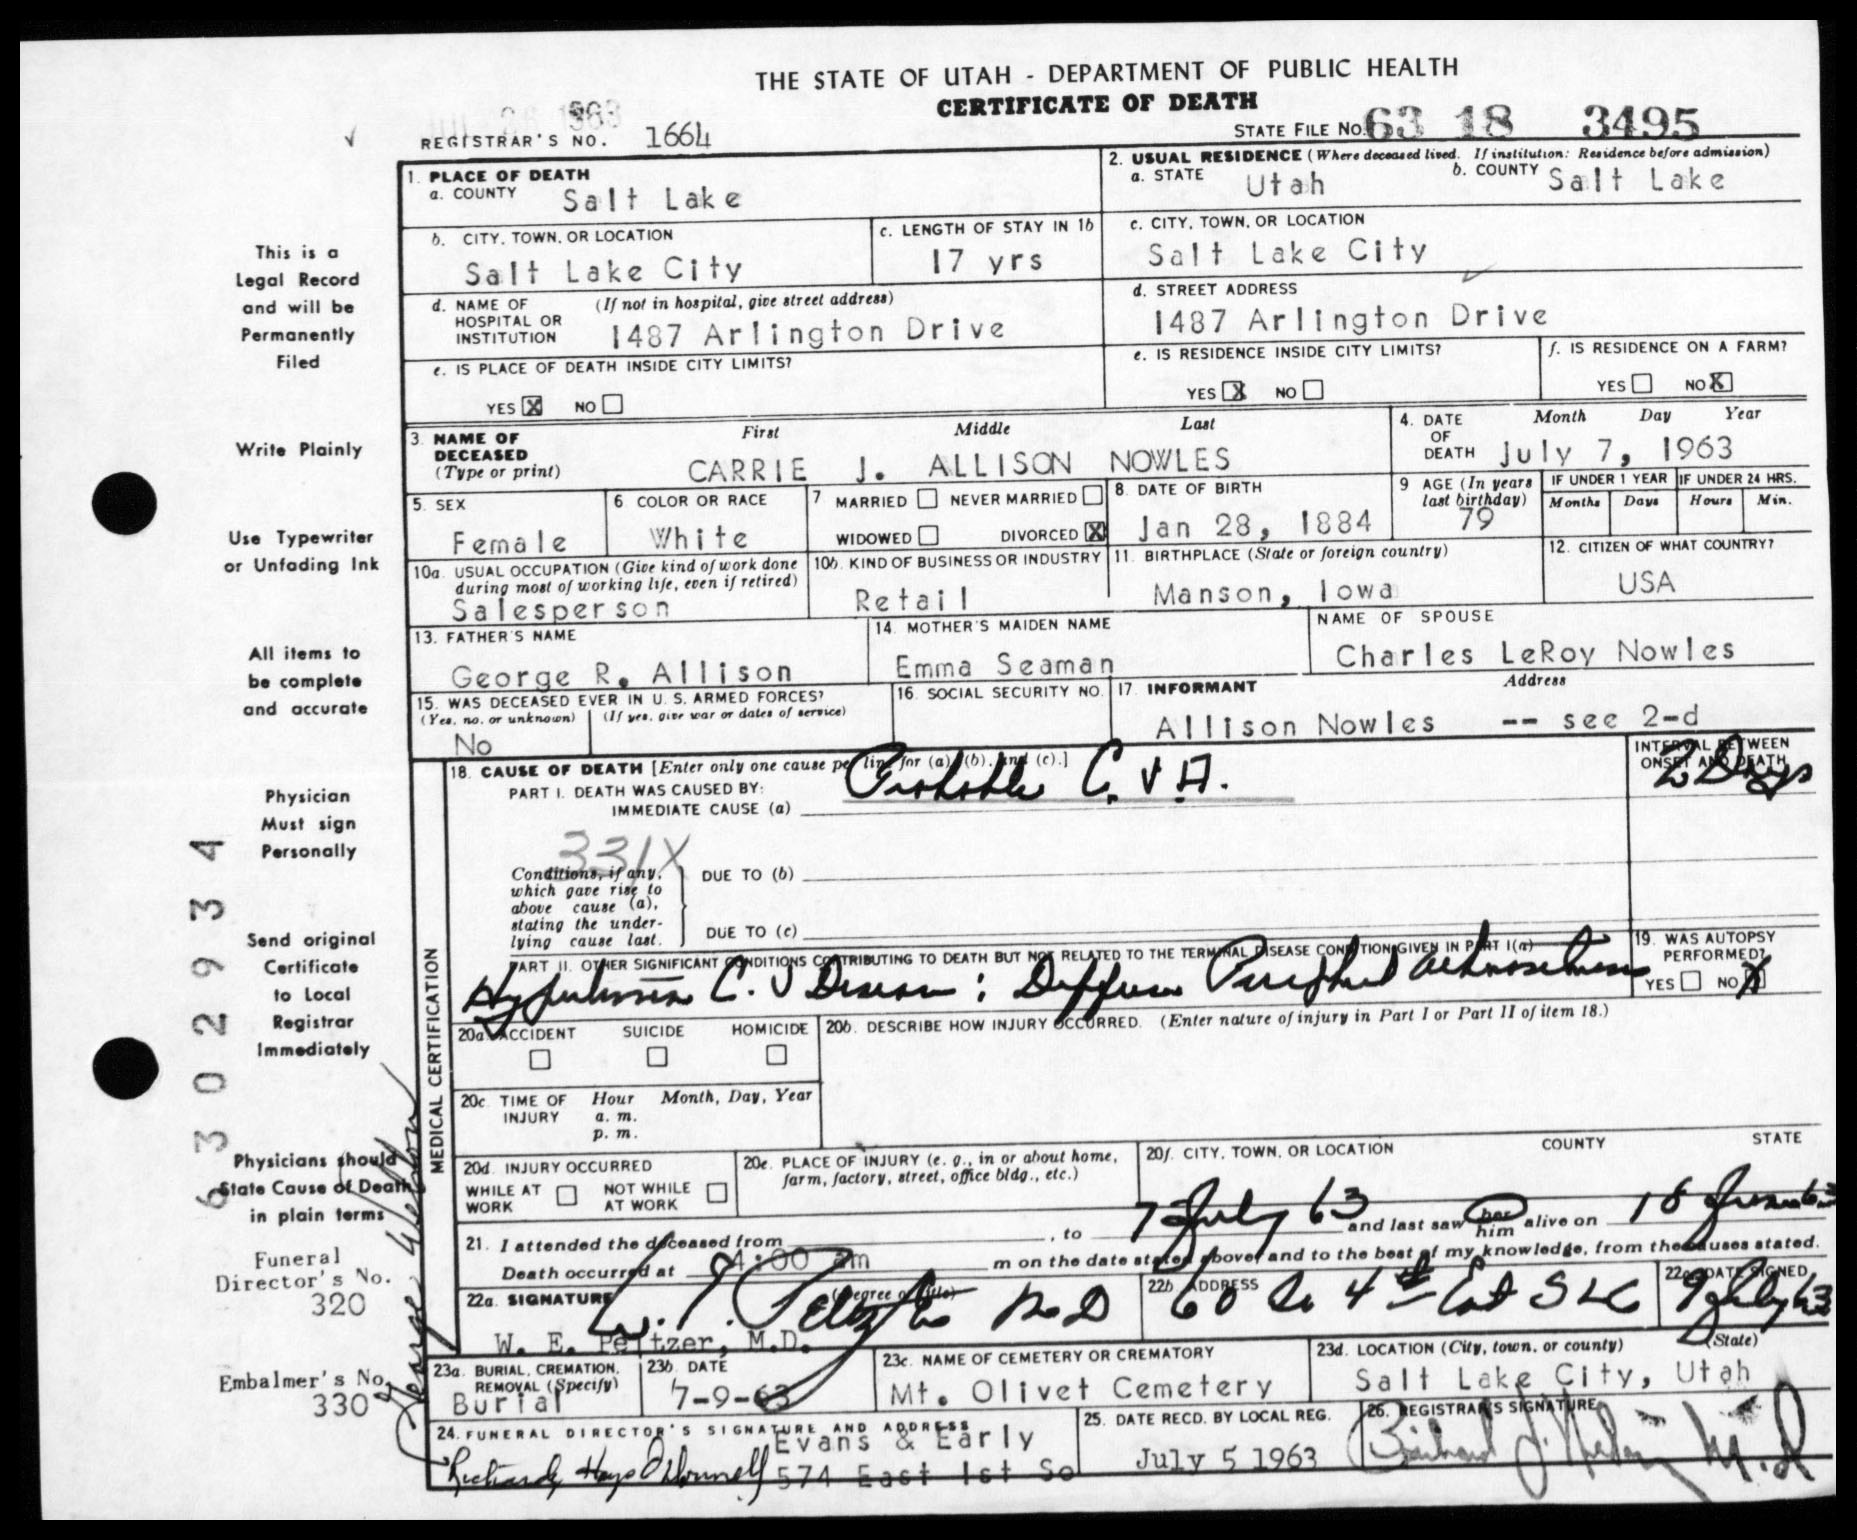 THE STATE OF UTAH - DEPARTMENT OF PUBLIC HEALTH
CERTIFICATE OF DEATH
REGISTRAR'S NO. 1664
STATE FILE NO. 63 18 3495
1. PLACE OF DEATH
a. COUNTY Salt Lake
2. USUAL RESIDENCE (Where deceased lived. If institution: Residence before admission)
a. STATE Utah b. COUNTY Salt Lake
b. CITY, TOWN, OR LOCATION Salt Lake City
c. LENGTH OF STAY IN 1b 17 yrs
c. CITY, TOWN, OR LOCATION Salt Lake City
d. NAME OF HOSPITAL OR INSTITUTION (If not in hospital, give street address) 1487 Arlington Drive
d. STREET ADDRESS 1487 Arlington Drive
e. IS PLACE OF DEATH INSIDE CITY LIMITS? YES X NO
e. IS RESIDENCE INSIDE CITY LIMITS? YES X NO
f. IS RESIDENCE ON A FARM? YES NO X
3. NAME OF DECEASED (Type or print) First Middle Last
CARRIE J. ALLISON NOWLES
4. DATE OF DEATH Month Day Year
July 7, 1963
5. SEX Female
6 COLOR OR RACE White
7 MARRIED NEVER MARRIED
WIDOWED DIVORCED X
8. DATE OF BIRTH Jan 28, 1884
9 AGE (In years last birthday) 79
IF UNDER 1 YEAR Months Days
IF UNDER 24 HRS. Hours Min.
10a. USUAL OCCUPATION (Give kind of work done during most of working life, even if retired) Salesperson
10b. KIND OF BUSINESS OR INDUSTRY Retail
11. BIRTHPLACE (State or foreign country) Manson, Iowa
12. CITIZEN OF WHAT COUNTRY? USA
13. FATHER'S NAME George R. Allison
14. MOTHER'S MAIDEN NAME Emma Seaman
NAME OF SPOUSE Charles LeRoy Nowles
15. WAS DECEASED EVER IN U.S. ARMED FORCES?
(Yes, no, or unknown) (If yes, give war or dates of service)
No
16. SOCIAL SECURITY NO.
17. INFORMANT Address
Allison Nowles -- see 2-d
MEDICAL CERTIFICATION
18. CAUSE OF DEATH [Enter only one cause per line for (a), (b), and (c).]
PART I. DEATH WAS CAUSED BY:
IMMEDIATE CAUSE (a) Probable C.V.A.
INTERVAL BETWEEN ONSET AND DEATH
2 Days
331X
Conditions, if any, which gave rise to above cause (a), stating the underlying cause last.
DUE TO (b)
DUE TO (c)
PART II. OTHER SIGNIFICANT CONDITIONS CONTRIBUTING TO DEATH BUT NOT RELATED TO THE TERMINAL DISEASE CONDITION GIVEN IN PART I(a)
Hypertension C.V Disease; Diffuse Peripheral
19. WAS AUTOPSY PERFORMED? YES NO X
20a. ACCIDENT SUICIDE HOMICIDE
20b. DESCRIBE HOW INJURY OCCURRED. (Enter nature of injury in Part I or Part II of item 18.)
20c. TIME OF INJURY Hour a. m. p. m. Month, Day, Year
20d. INJURY OCCURRED
WHILE AT WORK NOT WHILE AT WORK
20e. PLACE OF INJURY (e. g., in or about home, farm, factory, street, office bldg., etc.)
20f. CITY, TOWN, OR LOCATION COUNTY STATE
21. I attended the deceased from , to 7 July 63 and last saw her him alive on 18 June 63
Death occurred at 4:00 am m on the date stated above, and to the best of my knowledge, from the causes stated.
22a. SIGNATURE (Degree or title) W. E. Peltzer M D
W. E. Peltzer, M.D.
22b ADDRESS 60 So 4th East SLC
22c. DATE SIGNED 9 July 63
23a. BURIAL, CREMATION, REMOVAL (Specify) Burial
23b. DATE 7-9-63
23c. NAME OF CEMETERY OR CREMATORY Mt. Olivet Cemetery
23d. LOCATION (City, town, or county) (State)
Salt Lake City, Utah
24. FUNERAL DIRECTOR'S SIGNATURE AND ADDRESS
Evans & Early
574 East 1st So
25. DATE RECD. BY LOCAL REG.
July 5 1963
26. REGISTRAR'S SIGNATURE
This is a
Legal Record
and will be
Permanently
Filed
Write Plainly
Use Typewriter
or Unfading Ink
All items to
be complete
and accurate
Physician
Must sign
Personally
Send original
Certificate
to Local
Registrar
Immediately
Physicians should
State Cause of Death
in plain terms
Funeral
Director's No.
320
Embalmer's No.
330
6302934